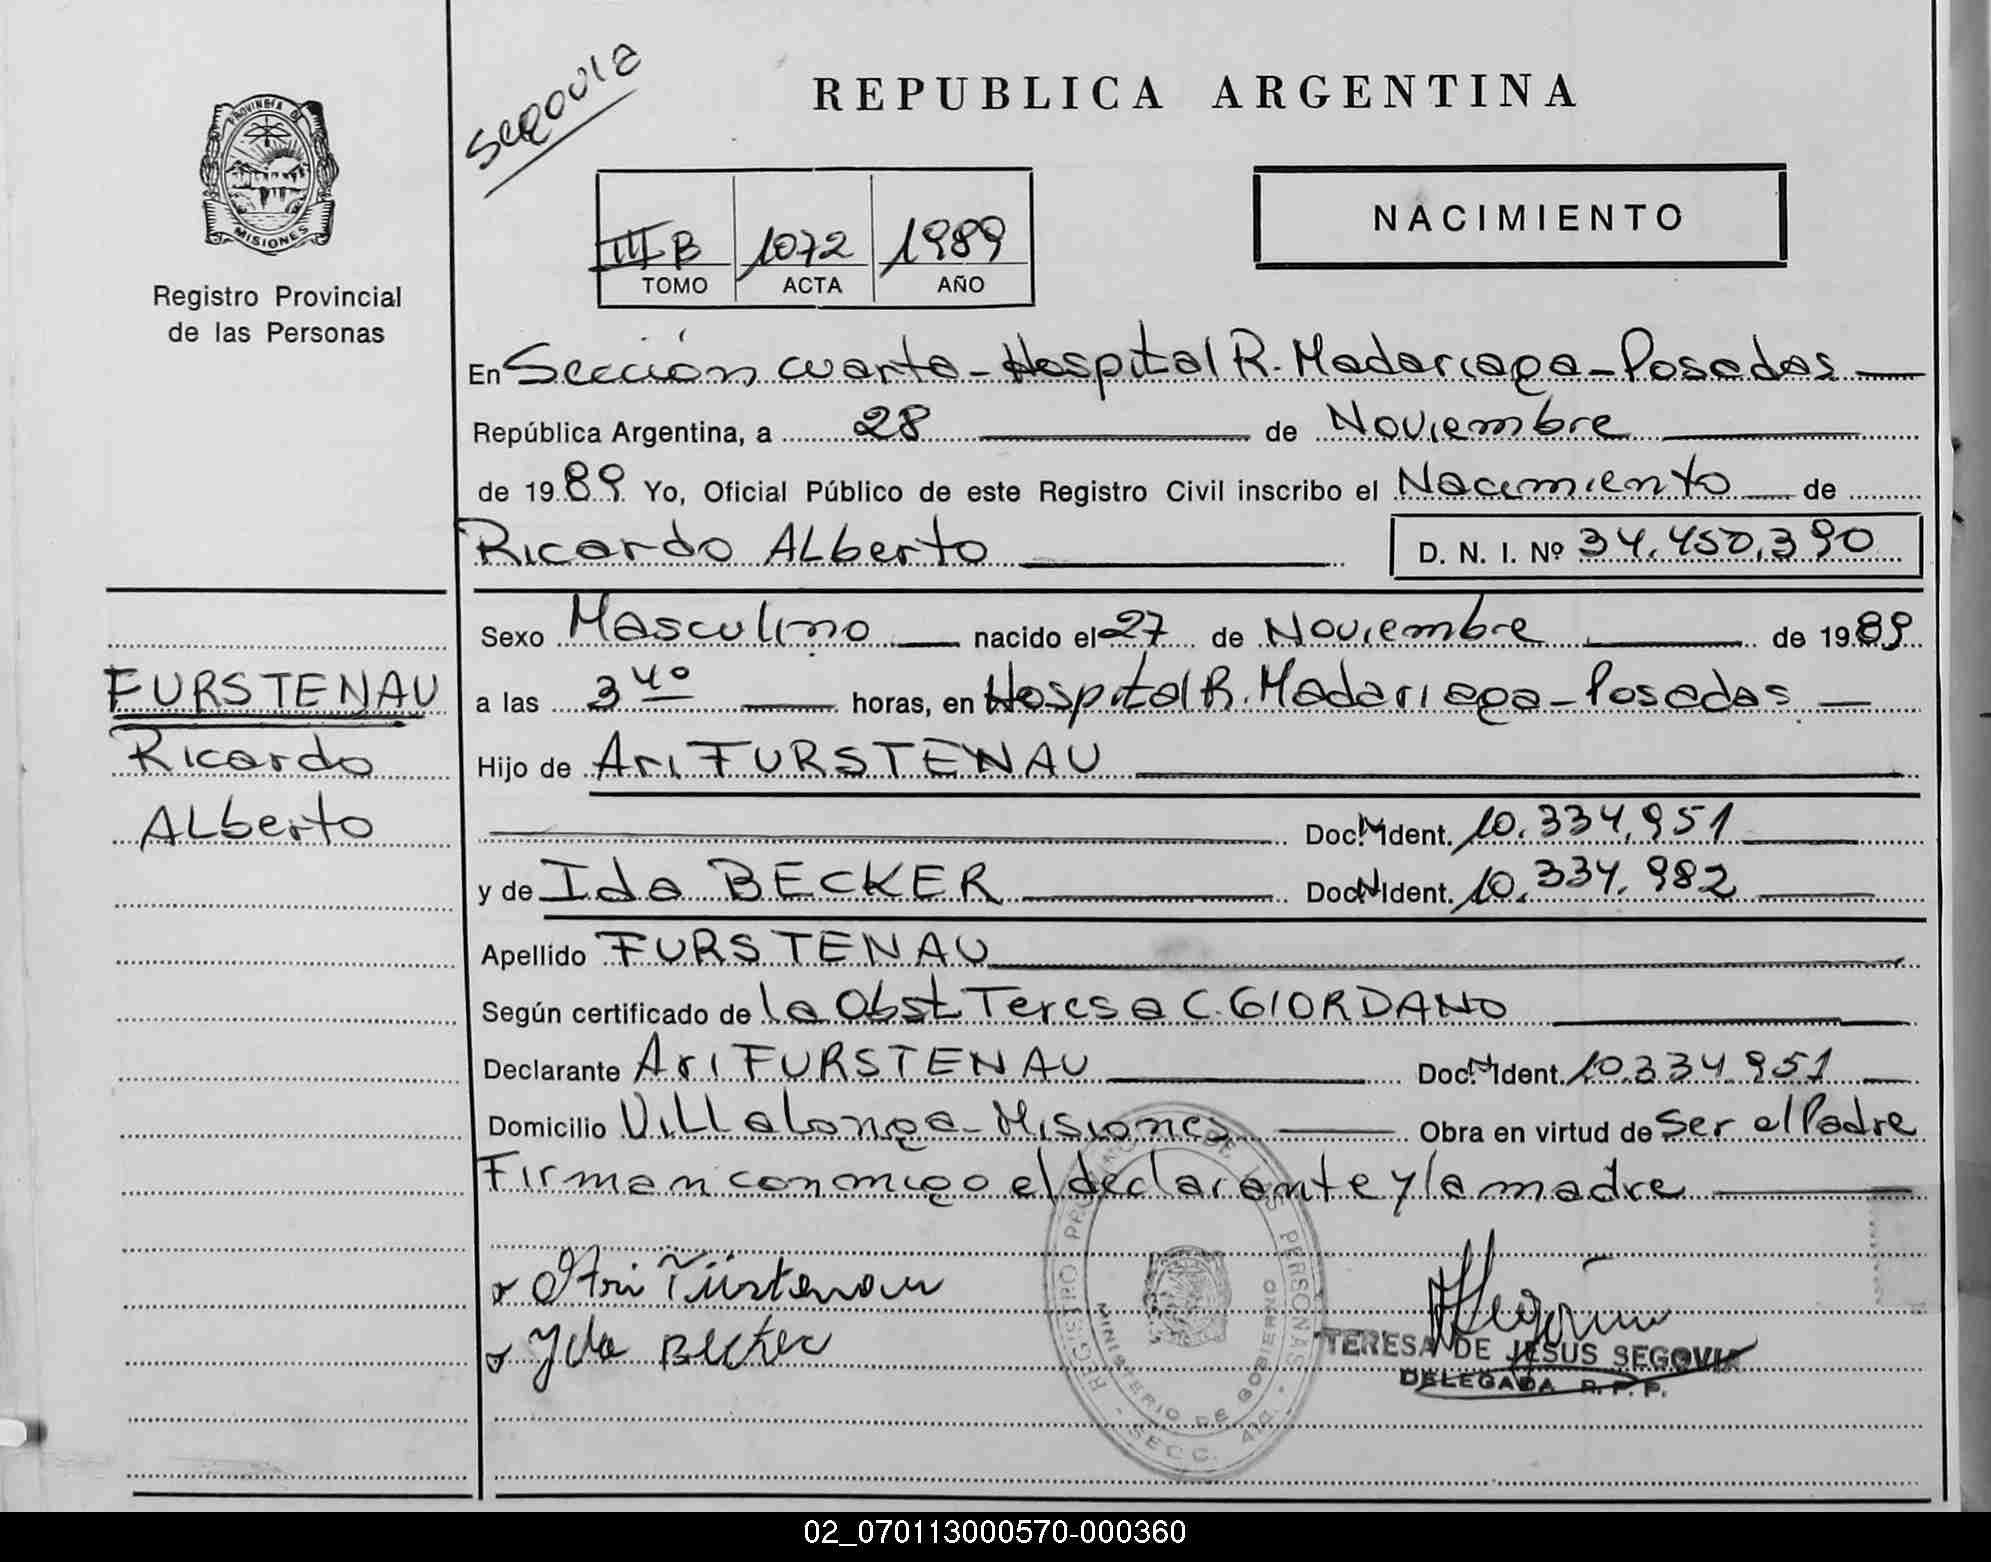 Segovia
REPUBLICA ARGENTINA
PROVINCIA DE
MISIONES
Registro Provincial
de las Personas
III B 1072 1989
TOMO ACTA AÑO
NACIMIENTO
En Sección cuarta - Hospital R. Madariaga - Posadas
República Argentina, a 28 de Noviembre
de 1989 Yo, Oficial Público de este Registro Civil inscribo el Nacimiento de
Ricardo ALberto D. N. I. Nº 34.450.390
Sexo Masculino nacido el 27 de Noviembre de 1989
a las 3 40 horas, en Hospital R. Madariaga - Posadas
Hijo de Ari FURSTENAU
Doc. N. Ident. 10.334.951
y de Ida BECKER Doc. N. Ident. 10.334.982
Apellido FURSTENAU
Según certificado de la Obst Teresa C. GIORDANO
Declarante Ari FURSTENAU Doc. N. Ident. 10.334.951
Domicilio Villalonga - Misiones Obra en virtud de Ser el Padre
Firman conmigo el declarante y la madre
FURSTENAU
Ricardo
ALberto
Ari Fürstenau
Yda Becker
REGISTRO PROVINCIAL DE LAS PERSONAS
MINISTERIO DE GOBIERNO
- SECC. 4ta. -
TERESA DE JESUS SEGOVIA
DELEGADA R. P. P.
02_070113000570-000360